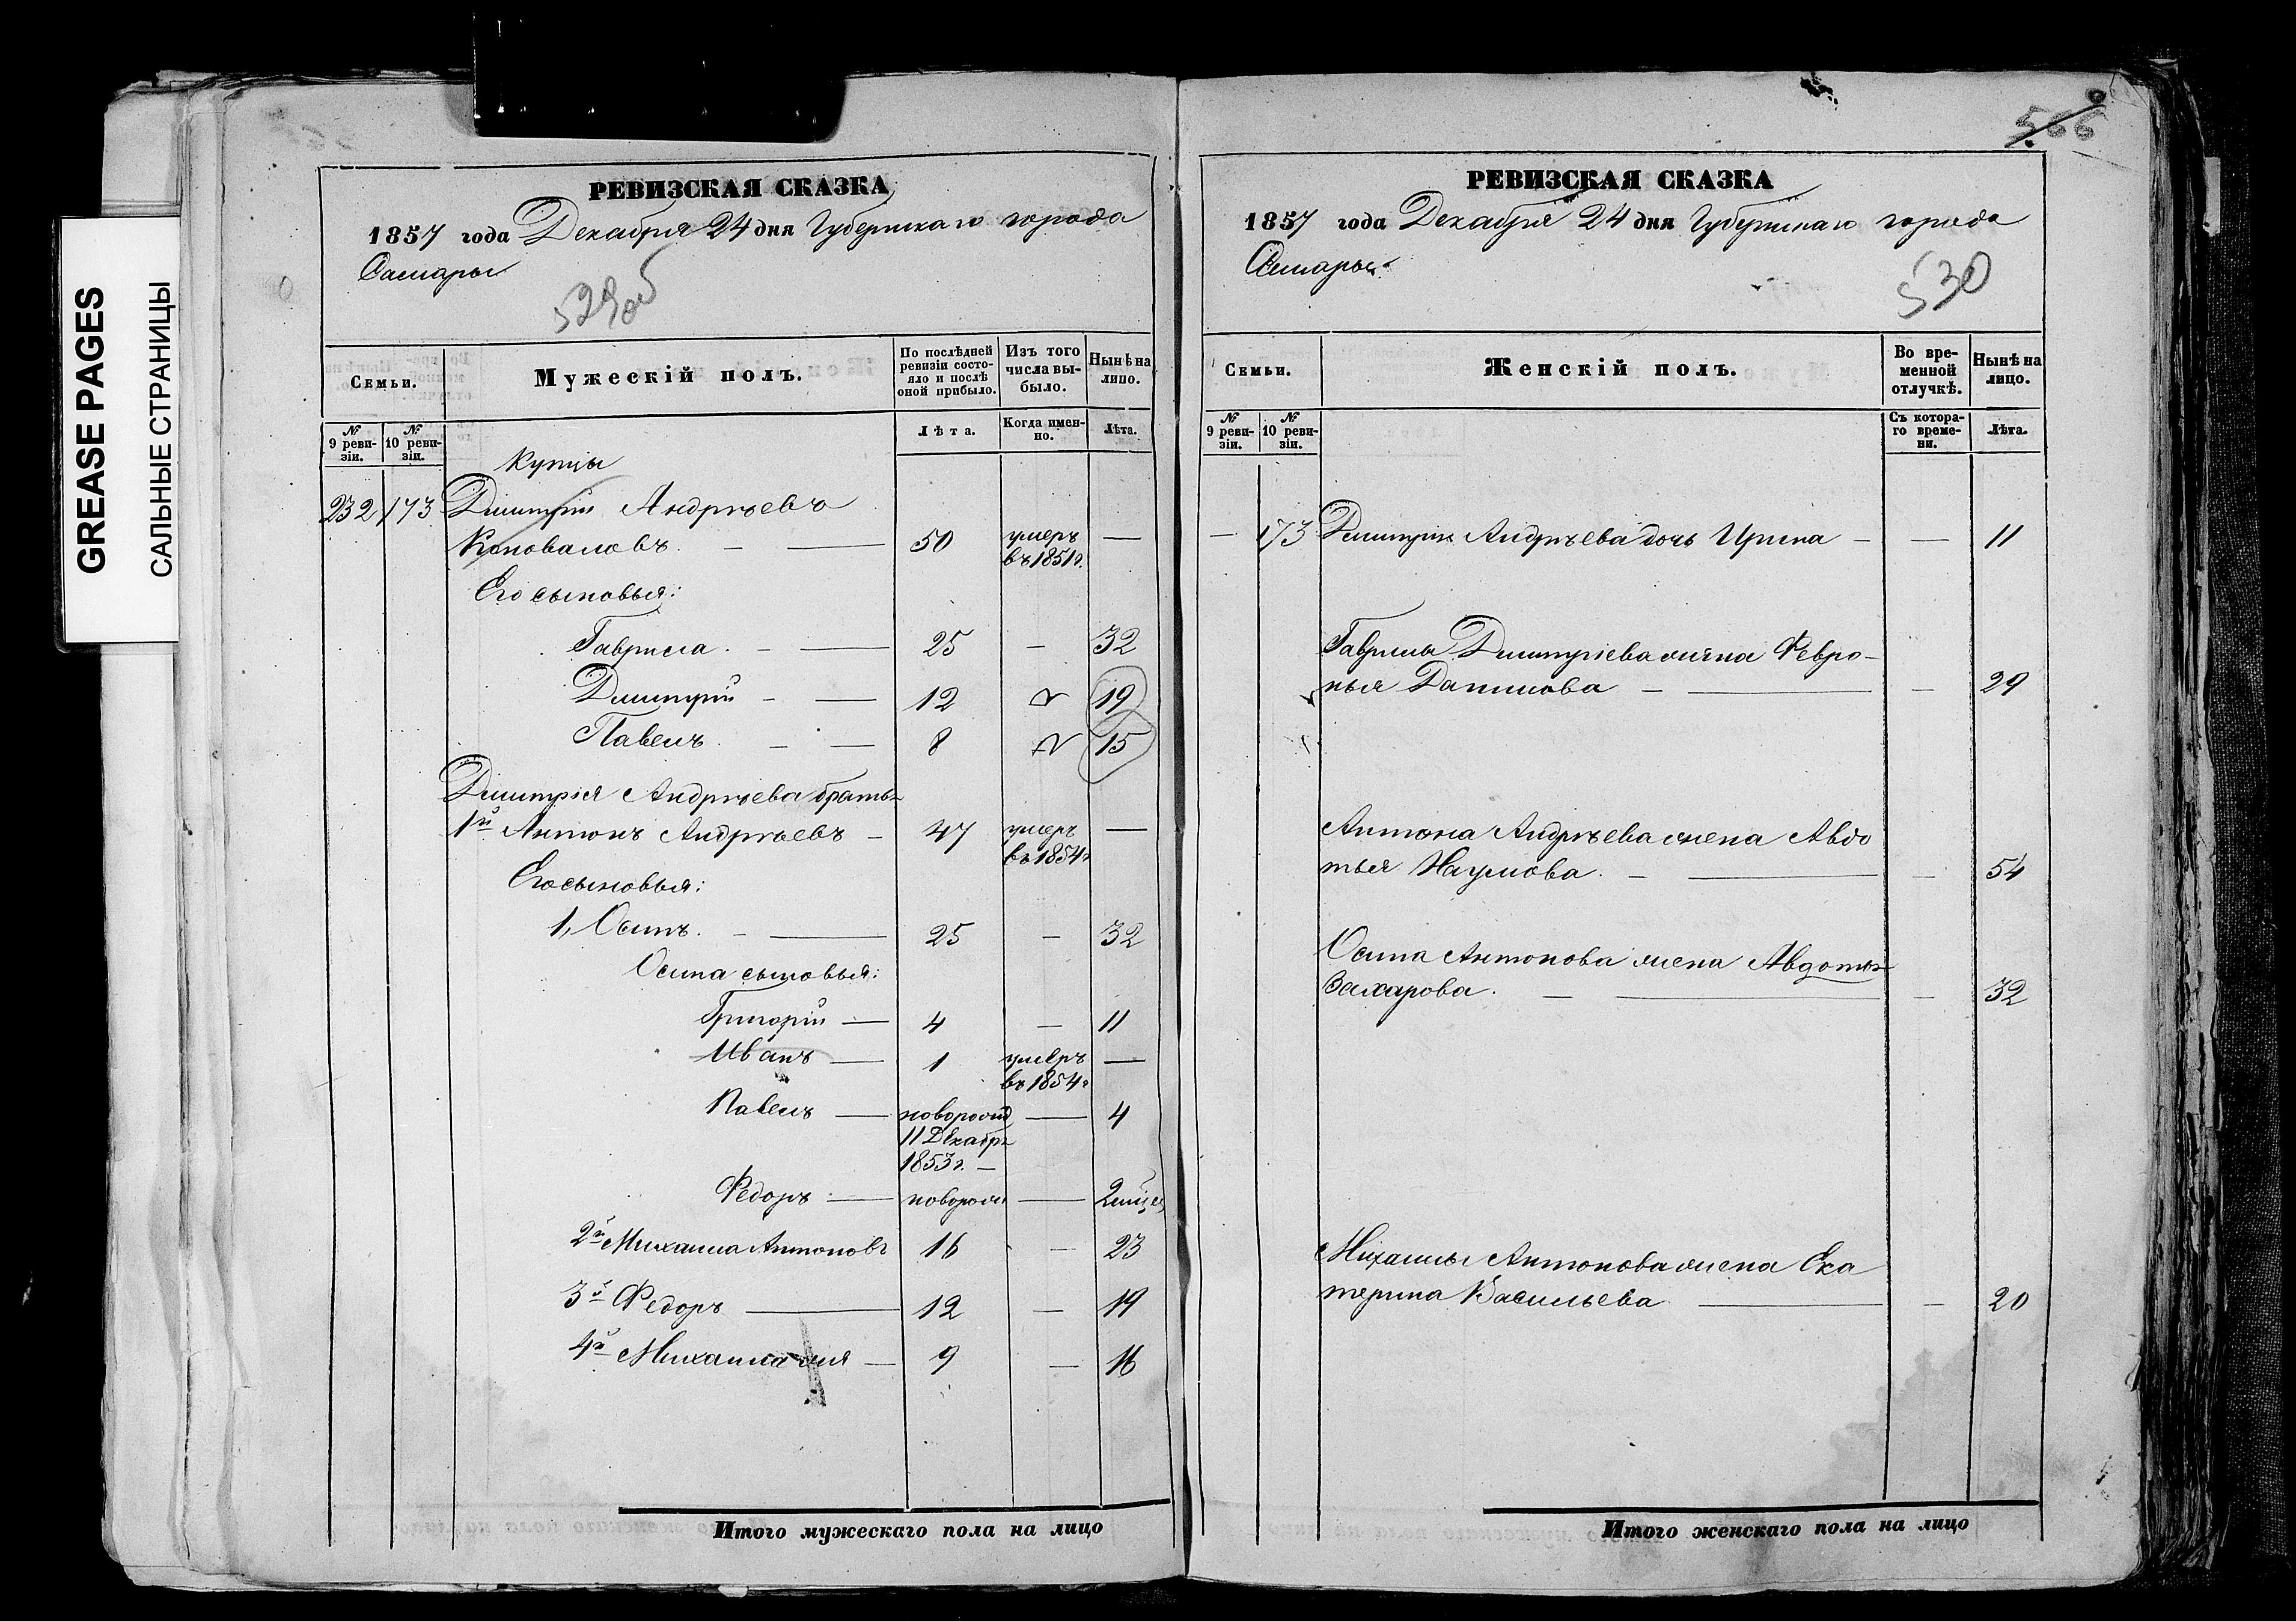 GREASE PAGES
САЛЬНЫЕ СТРАНИЦЫ
РЕВИЗСКАЯ СКАЗКА
1857 года Декабря 24 дня Губернскаго города
Самары
529об
Семьи.
Мужескій полъ.
По послѣдней ревизіи состояло и послѣ оной прибыло.
Изъ того числа выбыло.
Нынѣ на лицо.
№ 9 ревизіи.
№ 10 ревизіи.
Лѣта.
Когда именно.
Лѣта.
Купцы
232 173 Дмитрій Андрѣевъ
Коноваловъ. — 50 умеръ —
въ 1851г.
Его сыновья:
Гаврила. — 25 — 32
Дмитрій — 12 19
Павелъ — 8 15
Дмитрія Андрѣева братья
1й Антонъ Андрѣевъ — 47 умеръ —
въ 1854г
Его сыновья:
1, Осипъ. — 25 — 32
Осипа сыновья:
Григорій — 4 — 11
Иванъ — 1 умеръ —
въ 1854г
Павелъ — новорожд — 4
11 Декабря
1853г. —
Федоръ — новорож — 2 мѣсяц
2й Михаила Антоновъ 16 — 23
3й Федоръ — 12 — 19
4й Михаила — 9 — 16
Итого мужескаго пола на лицо
566
РЕВИЗСКАЯ СКАЗКА
1857 года Декабря 24 дня Губернскаго города
Самары.
530
Семьи.
Женскій полъ.
Во временной отлучкѣ.
Нынѣ на лицо.
№ 9 ревизіи.
№ 10 ревизіи.
Съ котораго времени.
Лѣта.
— 173 Дмитрія Андрѣева дочь Ирина — — 11
Гаврилы Дмитріева жена Февро-
нья Данилова — — 29
Антона Андрѣева жена Авдо
тья Наумова. — — 54
Осипа Антонова жена Авдотья
Захарова. — — 32
Михаилы Антонова жена Ека
терина Васильева — — 20
Итого женскаго пола на лицо